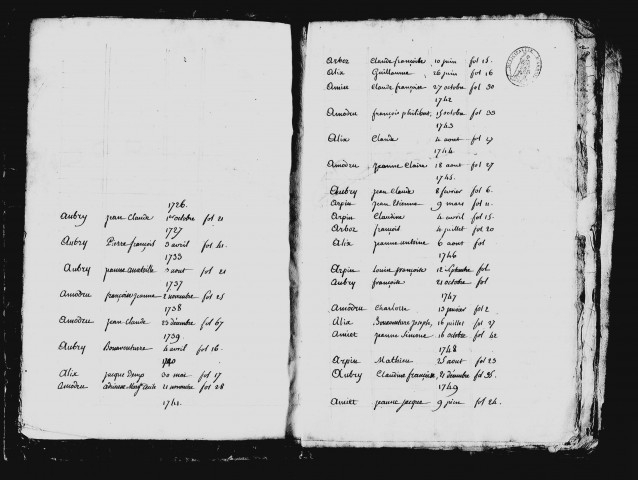 1726.
Aubry jean Claude 1er octobre fol 21
1727
Aubry Pierre françois 3 avril fol 41.
1733
Aubry jeanne anatoille 3 aout fol 21
1737
Amodru françoise jeanne 2 novembre fol 25
1738
Amodru jean Claude 23 decembre fol 67
1739.
Aubry Bonaventure 4 avril fol 16.
1740
Alix jacque 30 mai fol 17
Amodru 21 novembre fol 28
1741.
Arboz Claude françoise 10 juin fol 15.
Alix Guillaume 26 juin fol 16
Amiet Claude françoise 27 octobre fol 30
1742
Amodru françois philibert, 15 octobre fol 33
1743
Alix Claude 4 aout fol 27
1744
Amodru jeanne Claire 18 aout fol 27
1745.
Aubry jean Claude 8 fevrier fol 6.
Arpin jean Etienne 9 mars fol 11.
Arpin Claudine 4 avril fol 15.
Arboz françois 4 juillet fol 20
Alix jeanne antoine 6 aout fol
1746
Arpin Louise françoise 12 septembre fol
Aubry françoise 21 octobre fol
1747
Amodru Charlotte 13 janvier fol 2
Alix Bonaventure joseph, 16 juillet fol 27
Amiet jeanne Simone 16 octobre fol 42
1748
Arpin Mathieu 25 aout fol 23
Aubry Claudine françoise, 21 décembre fol 35.
1749
Amiet jeanne jacque 9 juin fol 24.